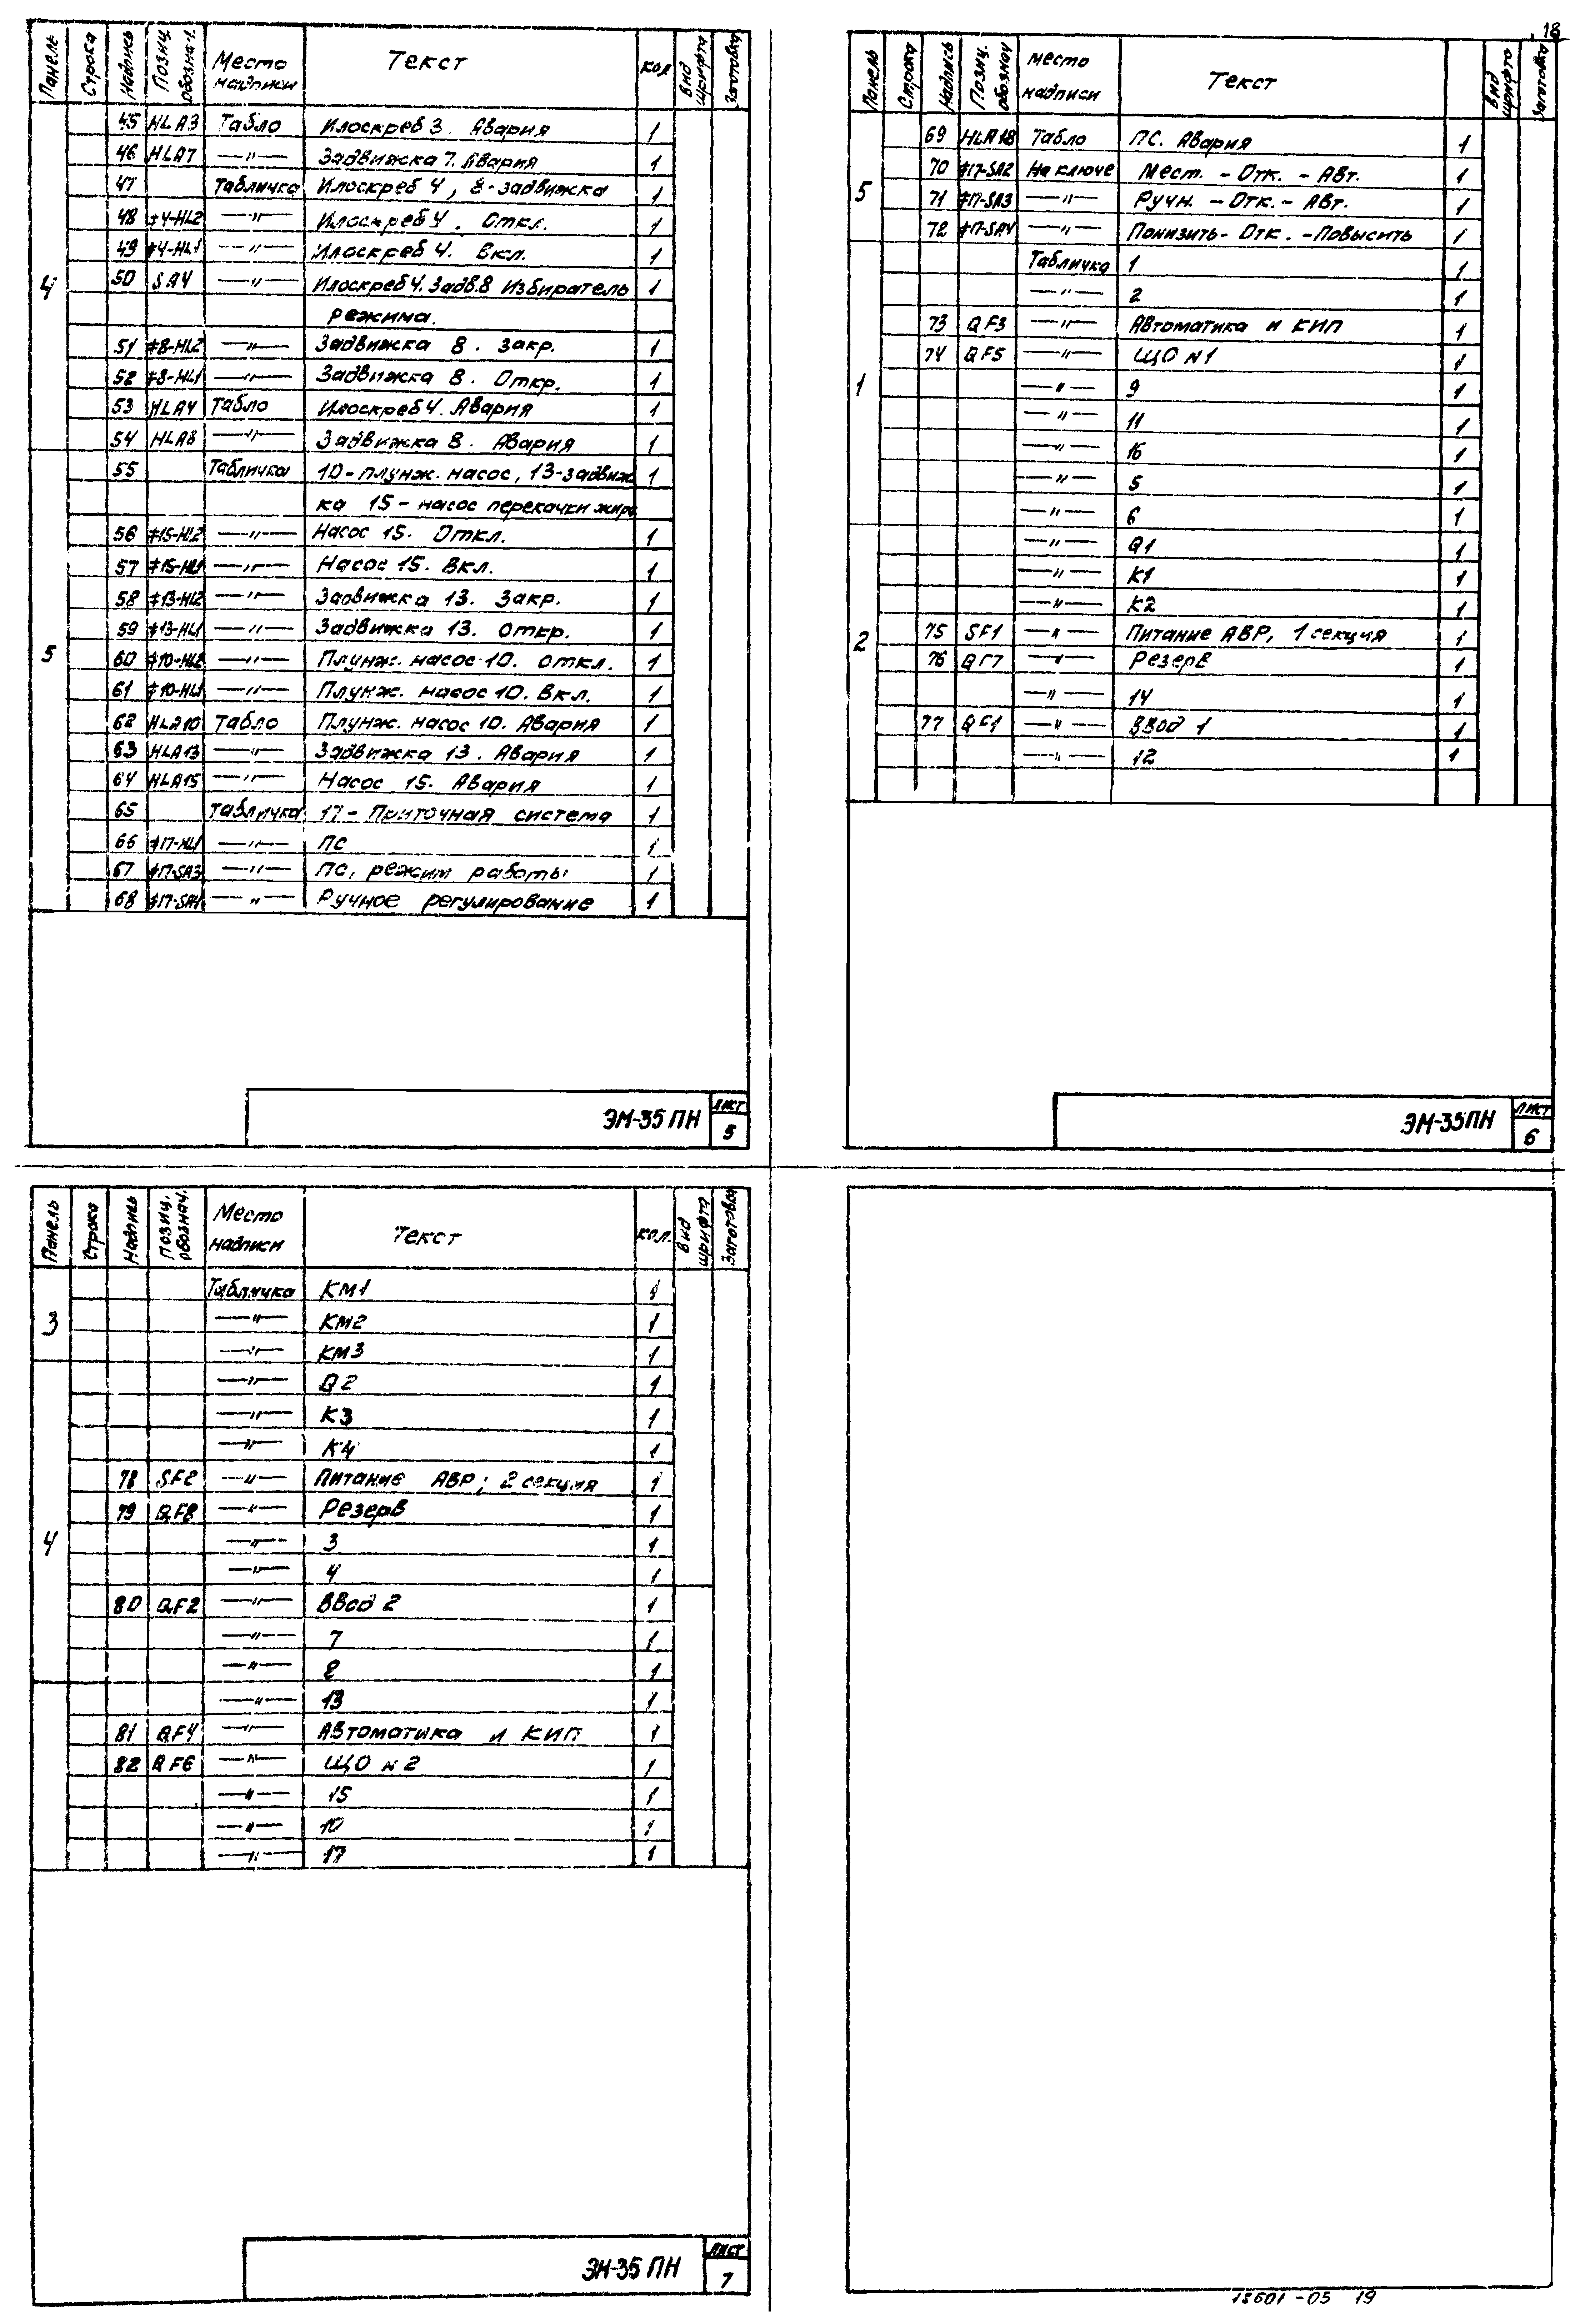 18
Панель Строка Надпись Позиц. обознач. Место надписи Текст кол Вид шрифта Заготовка
45 HLA3 Табло Илоскреб 3. Авария 1
46 HLA7 —"— Задвижка 7. Авария 1
47 Табличка Илоскреб 4, 8-задвижка 1
48 #4-HL2 —"— Илоскреб 4. Откл. 1
49 #4-HL1 —"— Илоскреб 4. Вкл. 1
4 50 SA4 —"— Илоскреб 4. Задв.8 Избиратель 1
режима.
51 #8-HL2 —"— Задвижка 8. Закр. 1
52 #8-HL1 —"— Задвижка 8. Откр. 1
53 HLA4 Табло Илоскреб 4. Авария 1
54 HLA8 —"— Задвижка 8. Авария 1
55 Табличка 10-плунж. насос, 13-задвиж 1
ка 15-насос перекачки жира
56 #15-HL2 —"— Насос 15. Откл. 1
57 #15-HL1 —"— Насос 15. Вкл. 1
58 #13-HL2 —"— Задвижка 13. Закр. 1
59 #13-HL1 —"— Задвижка 13. Откр. 1
5 60 #10-HL2 —"— Плунж. насос 10. откл. 1
61 #10-HL1 —"— Плунж. насос 10. Вкл. 1
62 HLA10 Табло Плунж. насос 10. Авария 1
63 HLA13 —"— Задвижка 13. Авария 1
64 HLA15 —"— Насос 15. Авария 1
65 Табличка 17-Приточная система 1
66 #17-HL1 —"— ПС 1
67 #17-SA3 —"— ПС, режим работы 1
68 #17-SA4 —"— Ручное регулирование 1
ЭМ-35 ПН лист 5
Панель Строка Надпись Позиц. обознач место надписи Текст Вид шрифта Заготовка
69 HLA18 Табло ПС. Авария 1
70 #17-SA2 На ключе Мест. - Отк. - Авт. 1
5 71 #17-SA3 —"— Ручн. - Отк. - Авт. 1
72 #17-SA4 —"— Понизить - Отк. - Повысить 1
Табличка 1 1
—"— 2 1
73 QF3 —"— Автоматика и КИП 1
74 QF5 —"— ЩО N1 1
1 —"— 9 1
—"— 11 1
—"— 16 1
—"— 5 1
—"— 6 1
—"— Q1 1
—"— К1 1
—"— К2 1
2 75 SF1 —"— Питание АВР, 1 секция 1
76 QF7 —"— Резерв 1
—"— 14 1
77 QF1 —"— Ввод 1 1
—"— 12 1
ЭМ-35ПН лист 6
Панель Строка Надпись Позиц. обознач. Место надписи Текст кол. Вид шрифта Заготовка
Табличка КМ1 1
3 —"— КМ2 1
—"— КМ3 1
—"— Q2 1
—"— К3 1
—"— К4 1
78 SF2 —"— Питание АВР; 2 секция 1
79 QF8 —"— Резерв 1
4 —"— 3 1
—"— 4 1
80 QF2 —"— Ввод 2 1
—"— 7 1
—"— 8 1
—"— 13 1
81 QF4 —"— Автоматика и КИП 1
82 QF6 —"— ЩО N2 1
—"— 15 1
—"— 10 1
—"— 17 1
ЭМ-35 ПН лист 7
18601-05 19